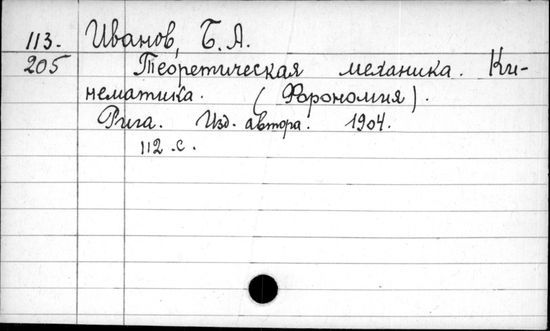 113. Иванов, Б. А.
205 Теоретическая механика. Ки-
нематика. (Форономия).
Рига. Изд. автора. 1904.
112 с.